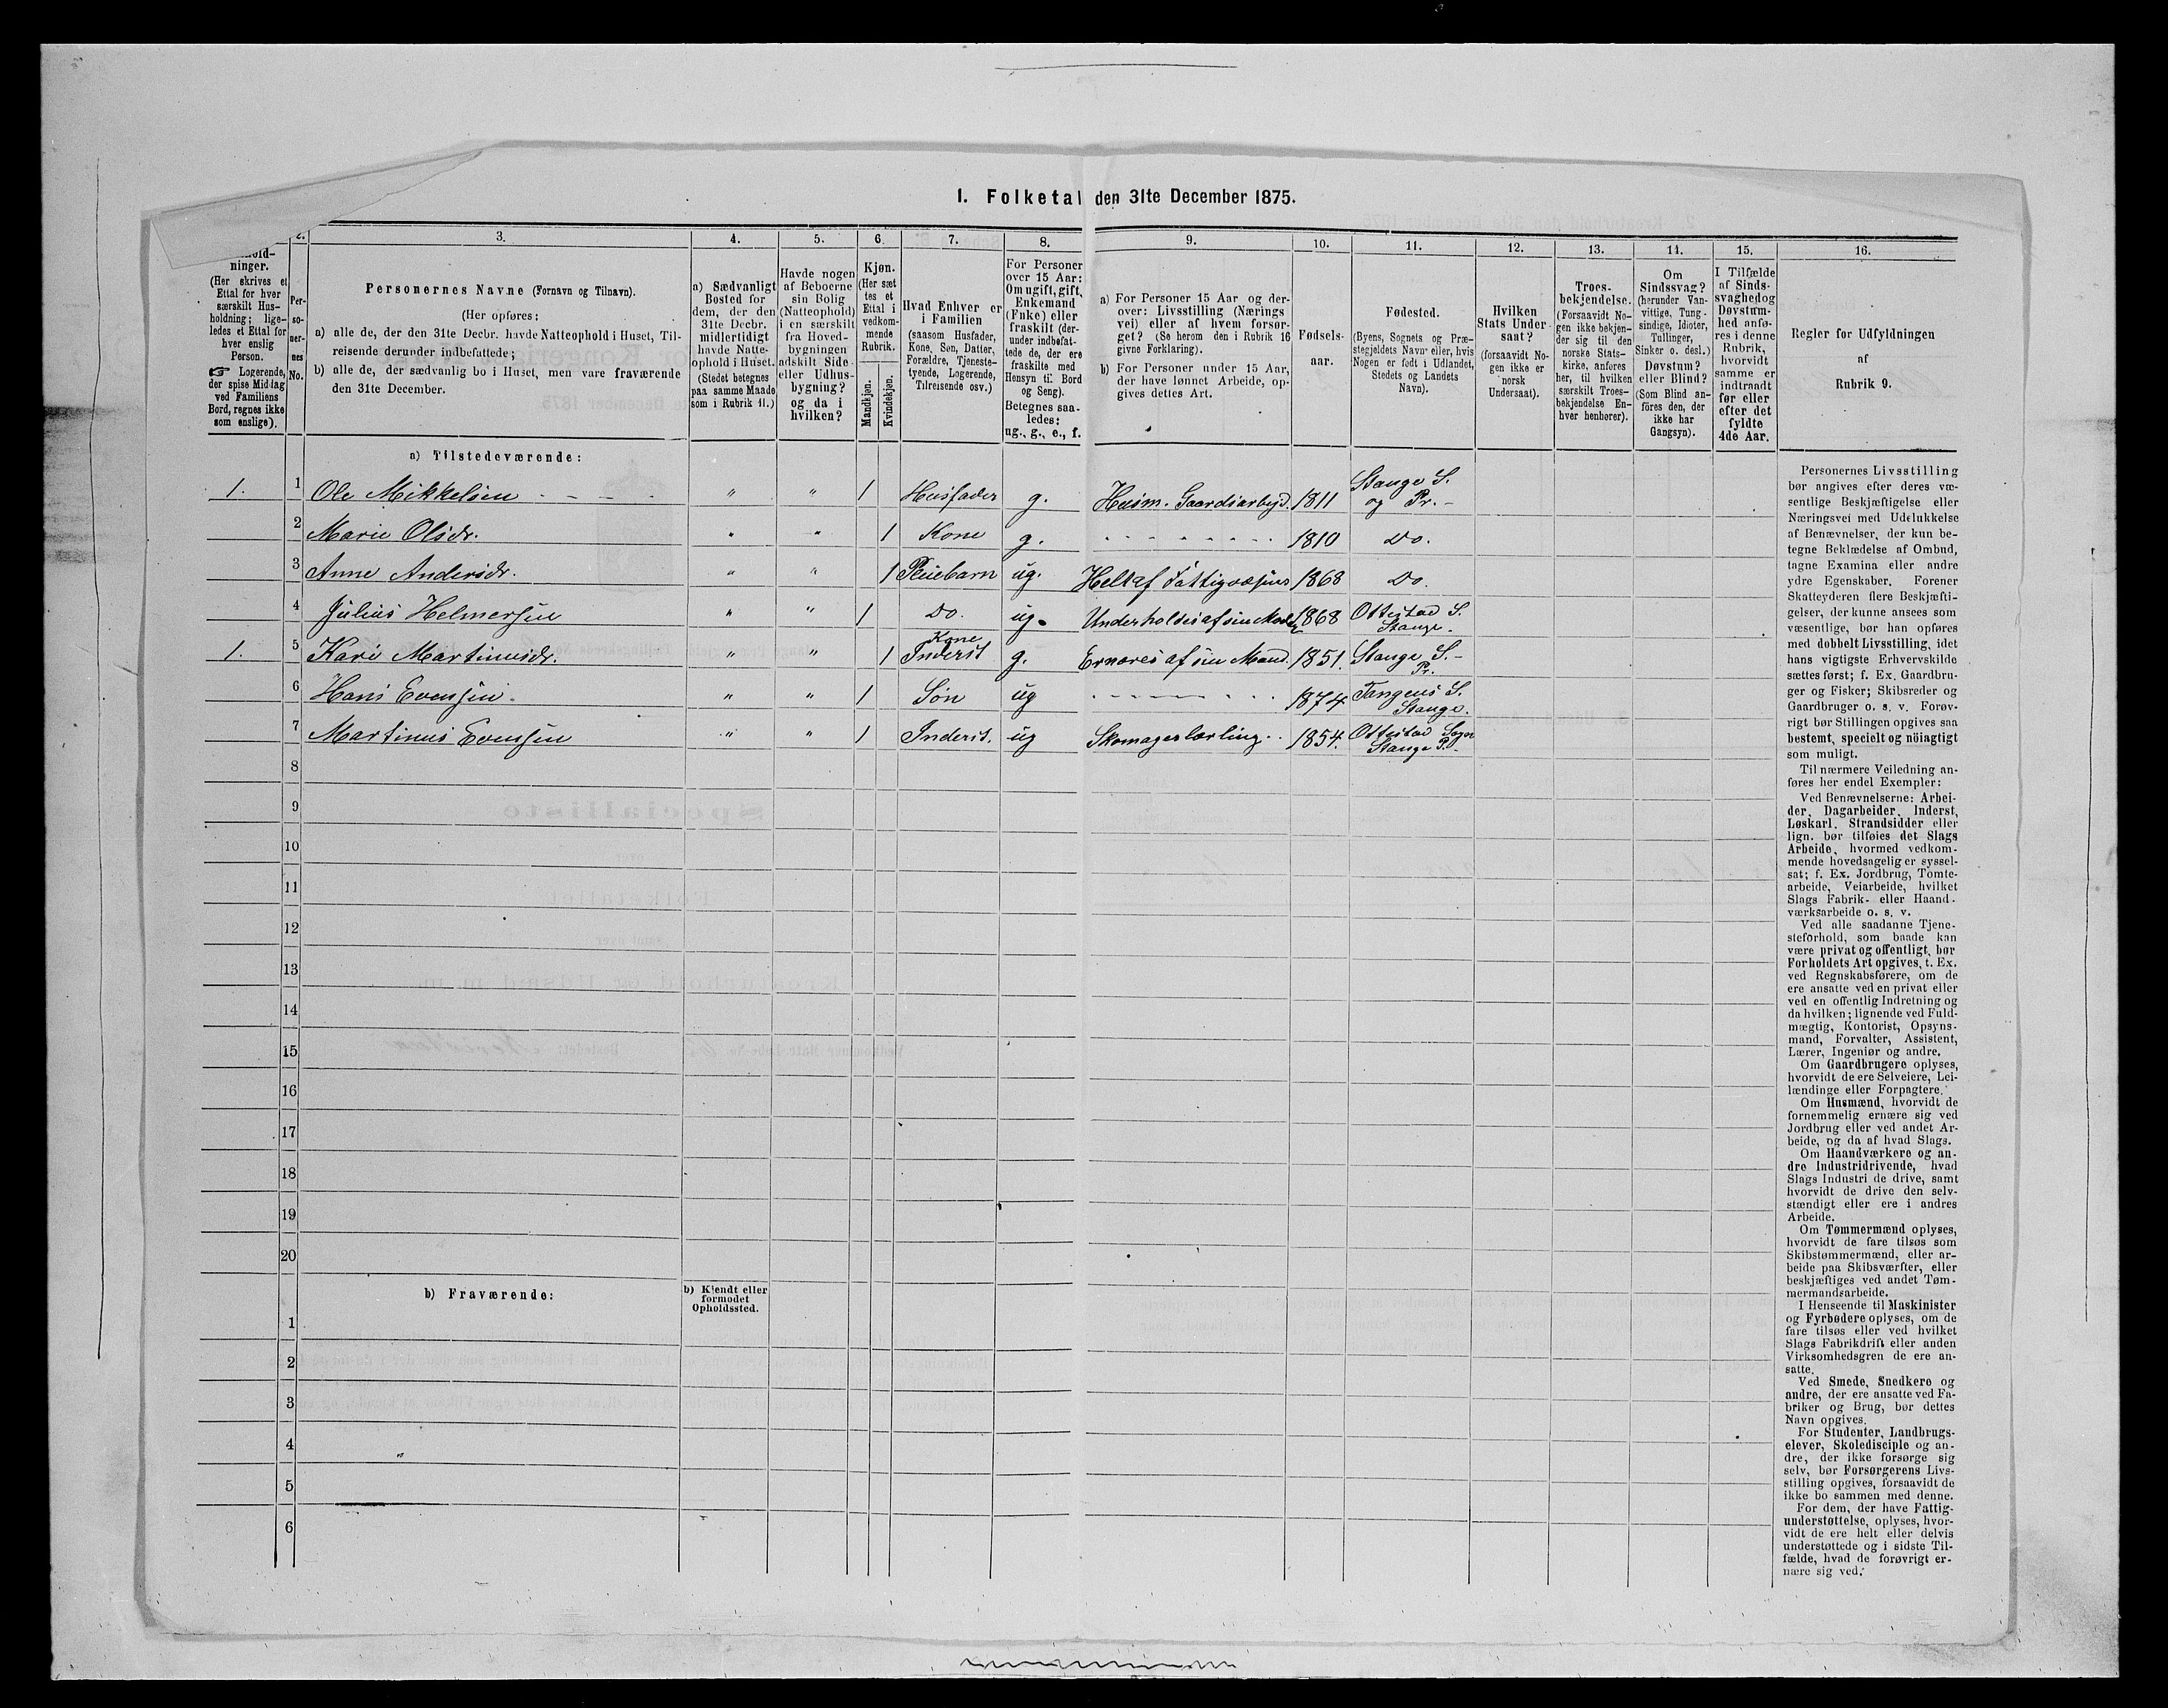 I. Folketal den 31te December 1875.
2. 3. 4. 5. 6. 7. 8. 9. 10. 11. 12. 13. 14. 15. 16.
ninger.
(Her skrives et
Ettal for hver
særskilt Hus-
holdning; lige-
ledes et Ettal for
hver enslig
Person.
☞ Logerende,
der spise Middag
ved Familiens
Bord, regnes ikke
som enslige).
Per-
so-
ner-
nes
No.
Personernes Navne (Fornavn og Tilnavn).
(Her opføres:
a) alle de, der den 31te Decbr. havde Natteophold i Huset, Til-
reisende derunder indbefattede;
b) alle de, der sædvanlig bo i Huset, men vare fraværende
den 31te December.
a) Sædvanligt
Bosted for
dem, der den
31te Decbr.
midlertidigt
havde Natte-
ophold i Huset.
(Stedet betegnes
paa samme Maade
som i Rubrik 11.)
Havde nogen
af Beboerne
sin Bolig
(Natteophold)
i en særskilt
fra Hoved-
bygningen
adskilt Side-
eller Udhus-
bygning?
og da i
hvilken?
Kjøn.
(Her sæt-
tes et
Ettal i
vedkom-
mende
Rubrik.
Mandkjøn.
Kvindekjøn.
Hvad Enhver er
i Familien
(saasom Husfader,
Kone, Søn, Datter,
Forældre, Tjeneste-
tyende, Logerende,
Tilreisende osv.)
For Personer
over 15 Aar:
Om ugift, gift,
Enkemand
(Enke) eller
fraskilt (der-
under indbefat-
tede de, der ere
fraskilte med
Hensyn til Bord
og Seng).
Betegnes saa-
ledes:
ug., g., e., f.
a) For Personer 15 Aar og der-
over: Livsstilling (Nærings-
vei) eller af hvem forsør-
get? (Se herom den i Rubrik 16
givne Forklaring).
b) For Personer under 15 Aar,
der have lønnet Arbeide, op-
gives dettes Art.
Fødsels-
aar.
Fødested.
(Byens, Sognets og Præ-
stegjeldets Navn eller, hvis
Nogen er født i Udlandet,
Stedets og Landets
Navn).
Hvilken
Stats Under-
saat?
(forsaavidt No-
gen ikke er
norsk
Undersaat).
Troes-
bekjendelse.
(Forsaavidt No-
gen ikke bekjen-
der sig til den
norske Stats-
kirke, anføres
her, til hvilken
særskilt Troes-
bekjendelse En-
hver henhører).
Om
Sindssvag?
(herunder Van-
vittige, Tung-
sindige, Idioter,
Tullinger,
Sinker o. desl.)
Døvstum?
eller Blind?
(Som Blind an-
føres den, der
ikke har
Gangsyn).
I Tilfælde
af Sinds-
svaghed og
Døvstum-
hed anfø-
res i denne
Rubrik,
hvorvidt
samme er
indtraadt
før eller
efter det
fyldte
4de Aar.
Regler for Udfyldningen
af
Rubrik 9.
a) Tilstedeværende:
1. 1 Ole Mikkelsen " " 1 Husfader g. Husm. Gaardsarbejd. 1811 Stange S. og Pr.
2 Marie Olsdr. " " 1 Kone g. 1810 Do.
3 Anne Andersdr. " " 1 Pleiebarn ug. Helt af Fattigvæsens 1868 Do.
4 Julius Helmersen " " 1 Do. ug. Underholdes af sin Moder 1868 Ottestad S. Stange.
1. 5 Kari Martinusdr. " " 1 Kone Inderst g. Ernæres af sin Mand. 1851. Stange S. Pr.
6 Hans Evensen " " 1 Søn ug 1874 Tangens S. Stange.
7 Martinus Evensen " " 1 Inderst. ug Skomagerlærling 1854. Ottestad Sogn Stange P.
8
9
10
11
12
13
14
15
16
17
18
19
20
b) Fraværende:
b) Kjendt eller
formodet
Opholdssted.
1
2
3
4
5
6
Personernes Livsstilling
bør angives efter deres væ-
sentlige Beskjæftigelse eller
Næringsvei med Udelukkelse
af Benævnelser, der kun be-
tegne Beklædelse af Ombud,
tagne Examina eller andre
ydre Egenskaber. Forener
Skatteyderen flere Beskjæfti-
gelser, der kunne ansees som
væsentlige, bør han opføres
med dobbelt Livsstilling, idet
hans vigtigste Erhvervskilde
sættes først; f. Ex. Gaardbru-
ger og Fisker; Skibsreder og
Gaardbruger o. s. v. Forøv-
rigt bør Stillingen opgives saa
bestemt, specielt og nöiagtigt
som muligt.
Til nærmere Veiledning an-
føres her endel Exempler:
Ved Benævnelserne: Arbei-
der, Dagarbeider, Inderst,
Løskarl, Strandsidder eller
lign. bør tilføies det Slags
Arbeide, hvormed vedkom-
mende hovedsagelig er syssel-
sat; f. Ex. Jordbrug, Tomte-
arbeide, Veiarbeide, hvilket
Slags Fabrik- eller Haand-
værksarbeide o. s. v.
Ved alle saadanne Tjene-
steforhold, som baade kan
være privat og offentligt, bør
Forholdets Art opgives, t. Ex.
ved Regnskabsførere, om de
ere ansatte ved en privat eller
ved en offentlig Indretning og
da hvilken; lignende ved Fuld-
mægtig, Kontorist, Opsyns-
mand, Forvalter, Assistent,
Lærer, Ingeniør og andre.
Om Gaardbrugere oplyses,
hvorvidt de ere Selveiere, Lei-
lændinge eller Forpagtere.
Om Husmænd, hvorvidt de
fornemmelig ernære sig ved
Jordbrug eller ved andet Ar-
beide, og da af hvad Slags.
Om Haandværkere og an-
dre Industridrivende, hvad
Slags Industri de drive, samt
hvorvidt de drive den selv-
stændigt eller ere i andres
Arbeide.
Om Tømmermænd oplyses,
hvorvidt de fare tilsøs som
Skibstømmermænd, eller ar-
beide paa Skibsværfter, eller
beskjæftiges ved andet Tøm-
mermandsarbeide.
I Henseende til Maskinister
og Fyrbødere oplyses, om de
fare tilsøs eller ved hvilket
Slags Fabrikdrift eller anden
Virksomhedsgren de ere an-
satte.
Ved Smede, Snedkere og
andre, der ere ansatte ved Fa-
briker og Brug, bør dettes
Navn opgives.
For Studenter, Landbrugs-
elever, Skoledisciple og an-
dre, der ikke forsørge sig
selv, bør Forsørgerens Livs-
stilling opgives, forsaavidt de
ikke bo sammen med denne.
For dem, der have Fattig-
understøttelse, oplyses, hvor-
vidt de ere helt eller delvis
understøttede og i sidste Til-
fælde, hvad de forøvrigt er-
nære sig ved.